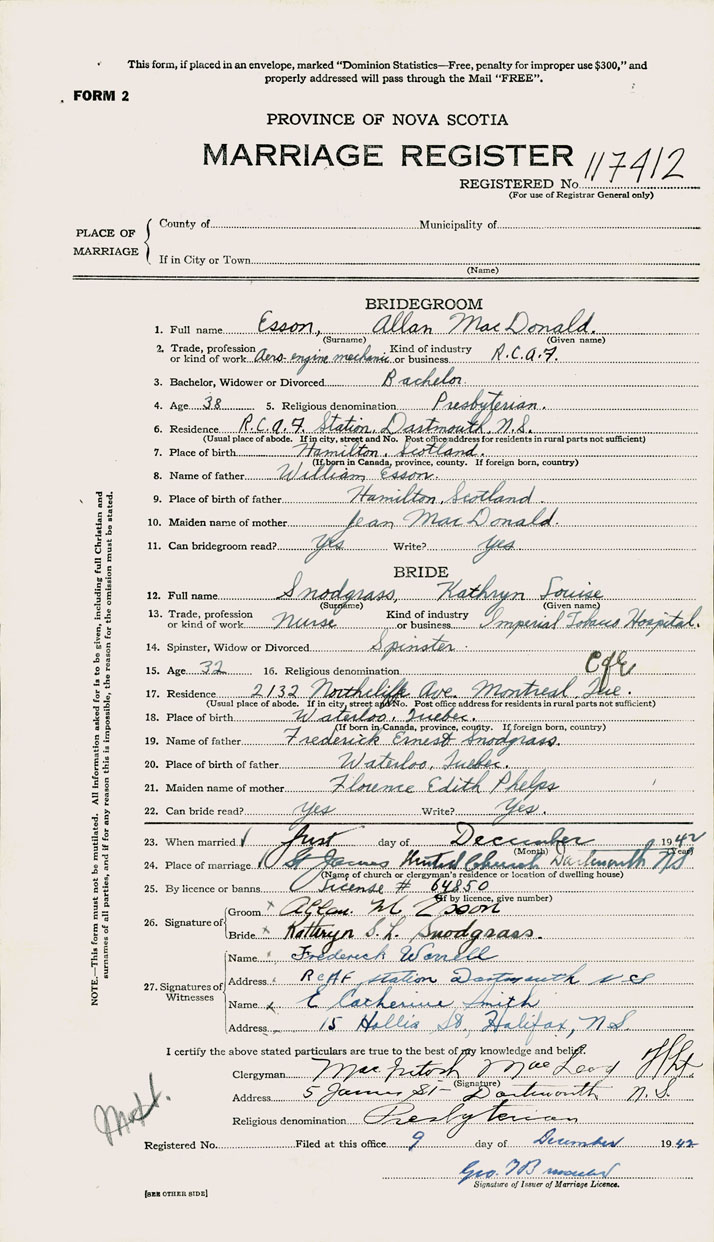 This form, if placed in an envelope, marked "Dominion Statistics—Free, penalty for improper use $300," and
properly addressed will pass through the Mail "FREE".
FORM 2
PROVINCE OF NOVA SCOTIA
MARRIAGE REGISTER
REGISTERED No. 117412
(For use of Registrar General only)
PLACE OF MARRIAGE
County of Municipality of
If in City or Town
(Name)
BRIDEGROOM
1. Full name Esson, Allan MacDonald.
(Surname) (Given name)
2. Trade, profession or kind of work Aero engine mechanic Kind of industry or business R.C.A.F.
3. Bachelor, Widower or Divorced Bachelor
4. Age 38 5. Religious denomination Presbyterian.
6. Residence R.C.A.F. Station, Dartmouth N.S.
(Usual place of abode. If in city, street and No. Post office address for residents in rural parts not sufficient)
7. Place of birth Hamilton, Scotland.
(If born in Canada, province, county. If foreign born, country)
8. Name of father William Esson.
9. Place of birth of father Hamilton, Scotland.
10. Maiden name of mother Jean MacDonald.
11. Can bridegroom read? Yes Write? Yes.
BRIDE
12. Full name Snodgrass, Kathryn Louise
(Surname) (Given name)
13. Trade, profession or kind of work Nurse Kind of industry or business Imperial Tobacco Hospital.
14. Spinster, Widow or Divorced Spinster.
15. Age 32 16. Religious denomination CofE
17. Residence 2132 Northcliffe Ave. Montreal, Que.
(Usual place of abode. If in city, street and No. Post office address for residents in rural parts not sufficient)
18. Place of birth Waterloo, Quebec.
(If born in Canada, province, county. If foreign born, country)
19. Name of father Frederick Ernest Snodgrass.
20. Place of birth of father Waterloo, Quebec.
21. Maiden name of mother Florence Edith Phelps
22. Can bride read? Yes Write? Yes.
23. When married first day of December 1942
(Month) (Year)
24. Place of marriage St James United Church Dartmouth NS
(Name of church or clergyman's residence or location of dwelling house)
25. By licence or banns License # 64850
(If by licence, give number)
26. Signature of Groom x Allan M Esson
Bride x Kathryn S. L. Snodgrass.
27. Signatures of Witnesses
Name Frederick
Address RCAF station Dartmouth NS
Name x E Catherine Smith
Address 15 Hollis St, Halifax, N.S.
I certify the above stated particulars are true to the best of my knowledge and belief.
Clergyman MacIntosh MacLeod
(Signature)
Address 5 James St - Dartmouth N.S.
Religious denomination Presbyterian
Registered No. Filed at this office 9 day of December 1942
Geo.
Signature of Issuer of Marriage Licence.
[SEE OTHER SIDE]
NOTE.—This form must not be mutilated. All information asked for is to be given, including full Christian and
surnames of all parties, and if for any reason this is impossible, the reason for the omission must be stated.